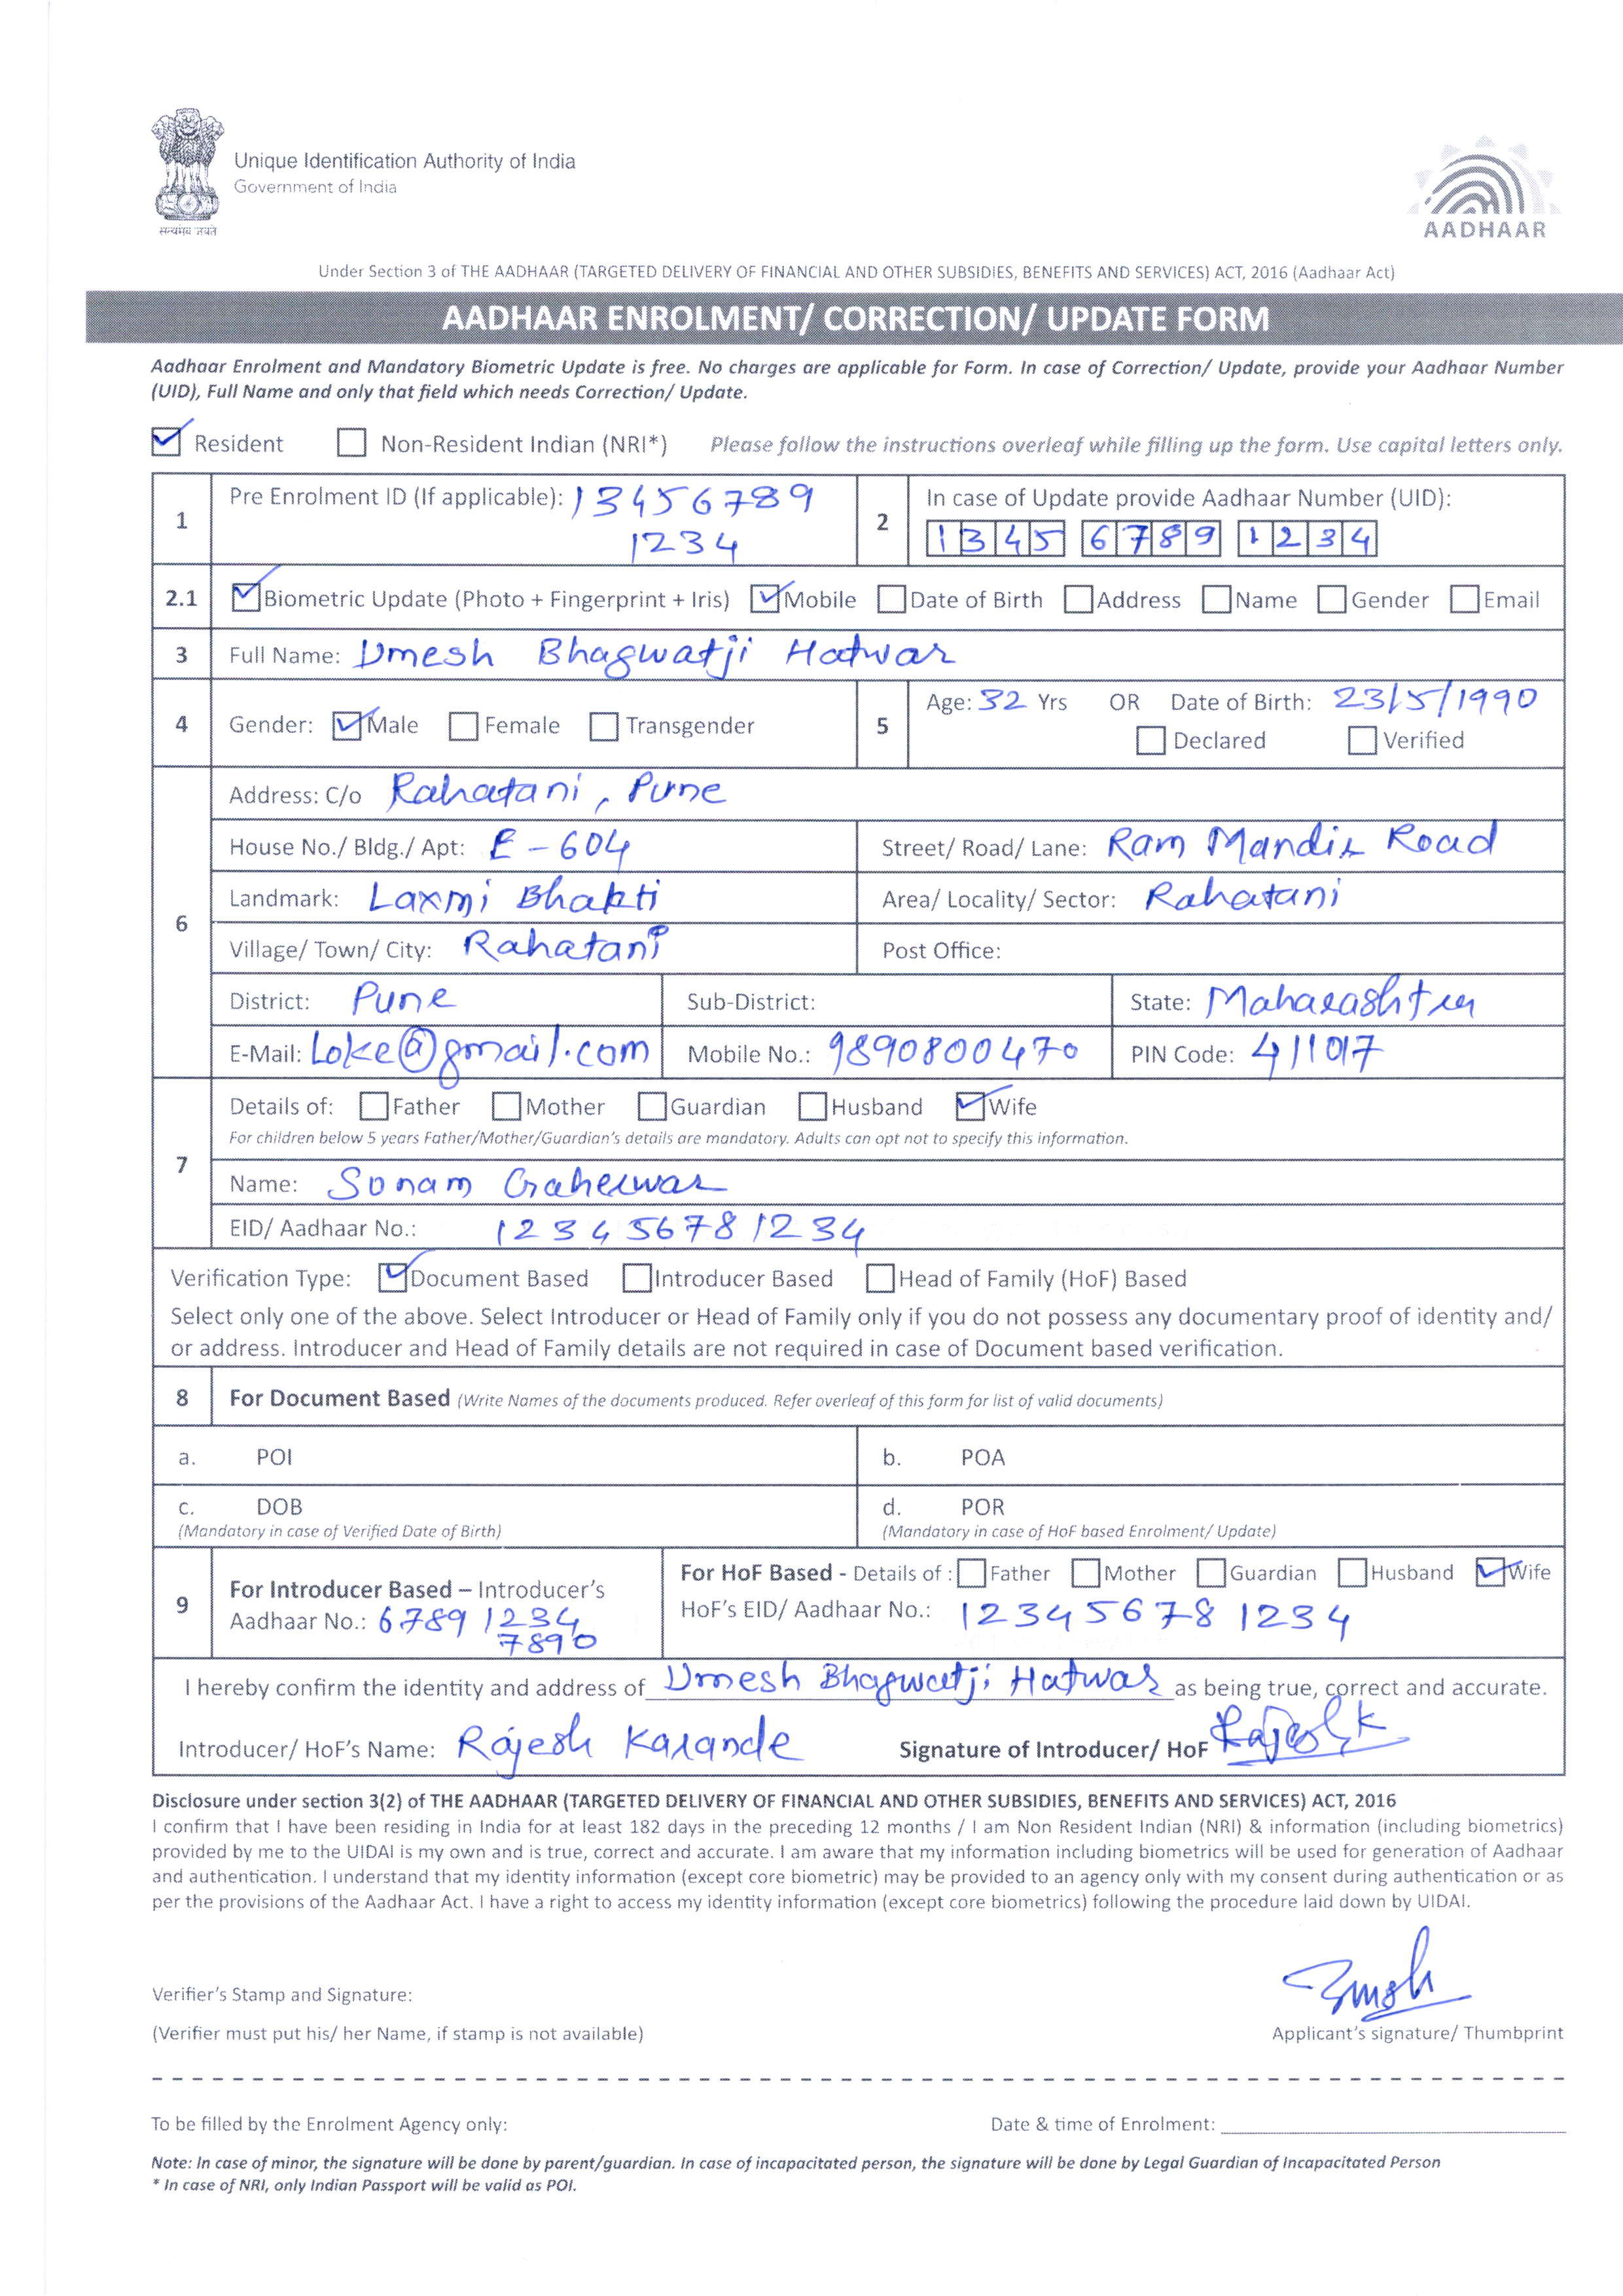 सत्यमेव जयते
Unique Identification Authority of India
Government of India
AADHAAR
Under Section 3 of THE AADHAAR (TARGETED DELIVERY OF FINANCIAL AND OTHER SUBSIDIES, BENEFITS AND SERVICES) ACT, 2016 (Aadhaar Act)
AADHAAR ENROLMENT/ CORRECTION/ UPDATE FORM
Aadhaar Enrolment and Mandatory Biometric Update is free. No charges are applicable for Form. In case of Correction/ Update, provide your Aadhaar Number
(UID), Full Name and only that field which needs Correction/ Update.
Resident Non-Resident Indian (NRI*) Please follow the instructions overleaf while filling up the form. Use capital letters only.
1 Pre Enrolment ID (If applicable): 13456789
1234
2 In case of Update provide Aadhaar Number (UID):
1345 6789 1234
2.1 Biometric Update (Photo + Fingerprint + Iris) Mobile Date of Birth Address Name Gender Email
3 Full Name: Umesh Bhagwatji Hatwar
4 Gender: Male Female Transgender
5 Age: 32 Yrs OR Date of Birth: 23/5/1990
Declared Verified
6 Address: C/o Rahatani, Pune
House No./ Bldg./ Apt: E-604 Street/ Road/ Lane: Ram Mandir Road
Landmark: Laxmi Bhakti Area/ Locality/ Sector: Rahatani
Village/ Town/ City: Rahatani Post Office:
District: Pune Sub-District: State: Maharashtra
E-Mail: Loke@gmail.com Mobile No.: 9890800470 PIN Code: 411017
7 Details of: Father Mother Guardian Husband Wife
For children below 5 years Father/Mother/Guardian's details are mandatory. Adults can opt not to specify this information.
Name: Sonam Gaherwar
EID/ Aadhaar No.: 123456781234
Verification Type: Document Based Introducer Based Head of Family (HoF) Based
Select only one of the above. Select Introducer or Head of Family only if you do not possess any documentary proof of identity and/
or address. Introducer and Head of Family details are not required in case of Document based verification.
8 For Document Based (Write Names of the documents produced. Refer overleaf of this form for list of valid documents)
a. POI b. POA
c. DOB d. POR
(Mandatory in case of Verified Date of Birth) (Mandatory in case of HoF based Enrolment/ Update)
9 For Introducer Based – Introducer's
Aadhaar No.: 67891234
7890
For HoF Based - Details of : Father Mother Guardian Husband Wife
HoF's EID/ Aadhaar No.: 123456781234
I hereby confirm the identity and address of Umesh Bhagwatji Hatwar as being true, correct and accurate.
Introducer/ HoF's Name: Rajesh Karande Signature of Introducer/ HoF Rajesh K
Disclosure under section 3(2) of THE AADHAAR (TARGETED DELIVERY OF FINANCIAL AND OTHER SUBSIDIES, BENEFITS AND SERVICES) ACT, 2016
I confirm that I have been residing in India for at least 182 days in the preceding 12 months / I am Non Resident Indian (NRI) & information (including biometrics)
provided by me to the UIDAI is my own and is true, correct and accurate. I am aware that my information including biometrics will be used for generation of Aadhaar
and authentication. I understand that my identity information (except core biometric) may be provided to an agency only with my consent during authentication or as
per the provisions of the Aadhaar Act. I have a right to access my identity information (except core biometrics) following the procedure laid down by UIDAI.
Umesh
Verifier's Stamp and Signature:
(Verifier must put his/ her Name, if stamp is not available) Applicant's signature/ Thumbprint
To be filled by the Enrolment Agency only: Date & time of Enrolment:
Note: In case of minor, the signature will be done by parent/guardian. In case of incapacitated person, the signature will be done by Legal Guardian of Incapacitated Person
* In case of NRI, only Indian Passport will be valid as POI.